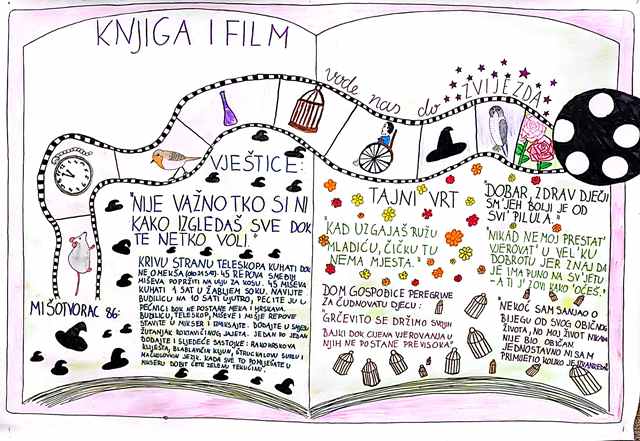 KNJIGA I FILM
vode nas do
ZVIJEZDA
VJEŠTICE:
"NIJE VAŽNO TKO SI NI
KAKO IZGLEDAŠ SVE DOK
TE NETKO VOLI."
MIŠOTVORAC 86:
KRIVU STRANU TELESKOPA KUHATI DOK
NE OMEKŠA (oko 21 SAT). 45 REPOVA SMEĐIH
MIŠEVA POPRŽITI NA ULJU ZA KOSU. 45 MIŠEVA
KUHATI 1 SAT U ŽABLJEM SOKU. NAVIJTE
BUDILICU NA 10 SATI UJUTRO, PECITE JU U
PEĆNICI DOK NE POSTANE MEKA I HRSKAVA.
BUDILICU, TELESKOP, MIŠEVE I MIŠJE REPOVE
STAVITE U MIKSER I IZMIKSAJTE. DODAJTE U SMJESU
ŽUTANJAK ROKTAVČINOG JAJETA. JEDAN PO JEDAN
DODAJTE I SLJEDEĆE SASTOJKE: RAKOHRSKOVA
KLIJEŠTA, BLABLAVČIN KLJUN, ŠTRUCALOVU SURLU I
MAČKOLOVČEV JEZIK. KADA SVE TO POMIJEŠATE U
MIKSERU DOBIT ĆETE ZELENU TEKUĆINU.
TAJNI VRT
"KAD UZGAJAŠ RUŽU
MLADIĆU, ČIČKU TU
NEMA MJESTA."
DOM GOSPOĐICE PEREGRINE
ZA ČUDNOVATU DJECU:
"GRČEVITO SE DRŽIMO SVOJIH
BAJKI DOK CIJENA VJEROVANJA U
NJIH NE POSTANE PREVISOKA"
"DOBAR, ZDRAV DJEČJI
SM'JEH BOLJI JE OD
SVI' PILULA."
"NIKAD NEMOJ PRESTAT'
VJEROVAT' U VEL'KU
DOBROTU JER ZNAJ DA
JE IMA PUNO NA SV'JETU
- A TI J' ZOVI KAKO 'OĆEŠ."
"NEKOĆ SAM SANJAO O
BIJEGU OD SVOG OBIČNOG
ŽIVOTA, NO MOJ ŽIVOT NIKADA
NIJE BIO OBIČAN.
JEDNOSTAVNO NISAM
PRIMIJETIO KOLIKO JE IZVANREDAN"